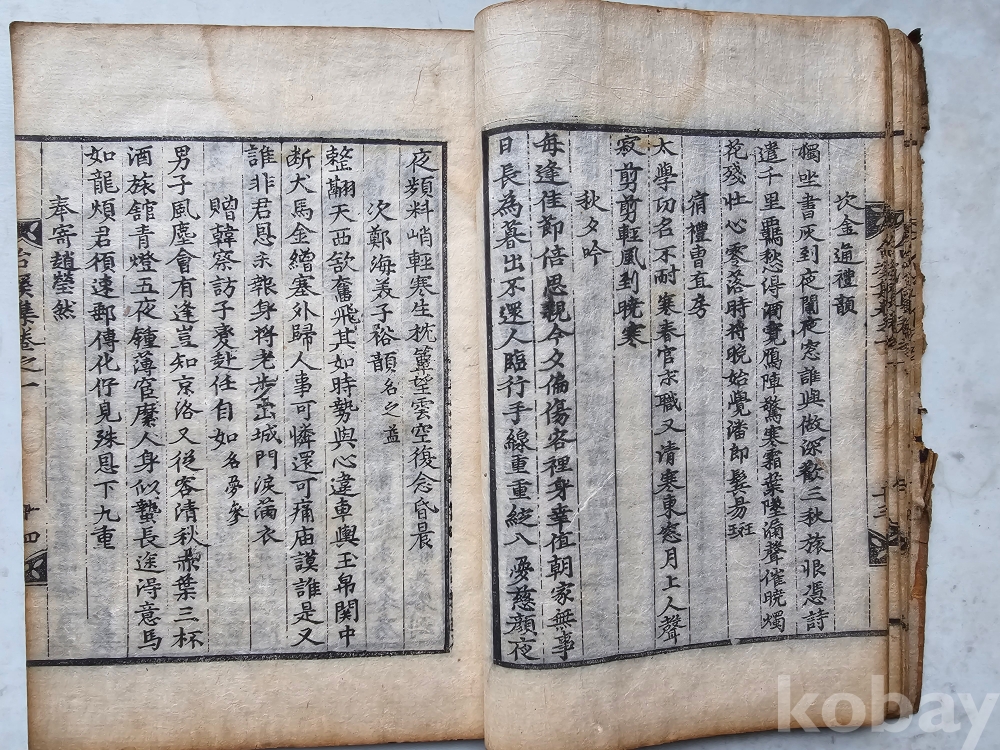 次金通禮顗
燭坐書灰到夜闌夜窓誰與做深歡三秋旅恨憑詩
遣千里羈愁得酒寬鴈陣驚寒霜葉墜漏聲催曉燭
花殘壯心零落時將晩始覺潘郎髩易
宿禮曹直房
太學功名不耐寒春官求職又清寒東窓月上人聲
寂剪剪輕風到曉寒
秋夕吟
每逢佳節倍思親今夕偏傷客裡身幸值朝家無事
日長為暮出不還人臨行手線重重綻入夢慈顔夜
夜頻料峭輕寒生枕簟望雲空復念昏晨
次鄭海美子裕顗名之益
整翮天西欲奮飛其如時勢與心違車輿玉帛関中
断犬馬金繒塞外歸人事可憐還可痛庙謨誰是又
誰非君恩未報身將老步出城門淚滿衣
贈韓察訪子
赴任自如名夢參
男子風塵會有逢豈知京洛又從容清秋鼎葉三杯
酒旅舘青燈五夜鍾薄宦縻人身似蟄長途得意馬
如龍煩君須速郵傳化佇見殊恩下九重
奉寄趙瑩然
集卷之一
十四
十三
kobay